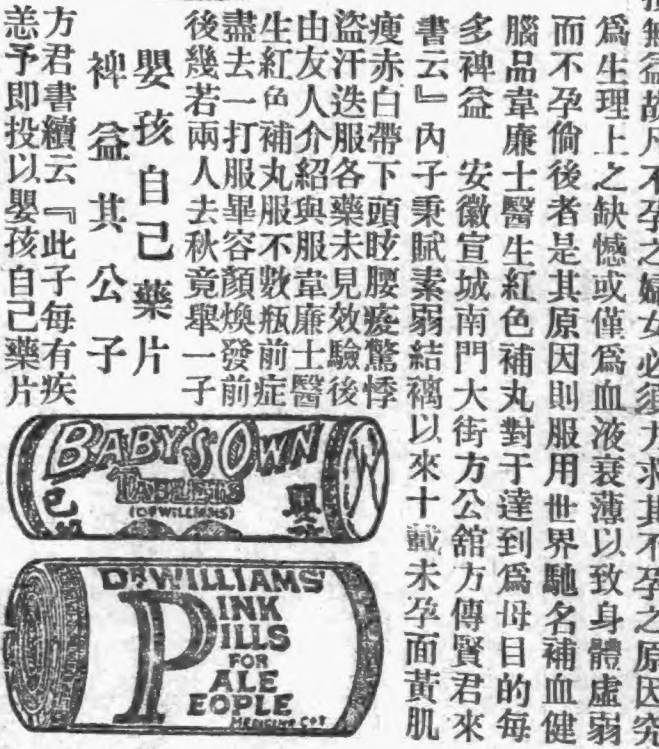 無益故凡不孕之婦女必須力求其不孕之原因究
爲生理上之缺憾或僅爲血液衰薄以致身體虛弱
而不孕倘後者是其原因則服用世界馳名補血健
腦品韋廉士醫生紅色補丸對于達到爲母目的每
多裨益 安徽宣城南門大街方公舘方傳賢君來
書云『內子秉賦素弱結褵以來十載未孕面黃肌
瘦赤白帶下頭眩腰痠驚悸
盜汗迭服各藥未見效驗後
由友人介紹與服韋廉士醫
生紅色補丸服不數瓶前症
盡去一打服畢容顏煥發前
後幾若兩人去秋竟舉一子
嬰孩自己藥片
裨益其公子
方君書續云『此子每有疾
恙予即投以嬰孩自己藥片
BABY'S OWN
TABLETS
(DR WILLIAMS)
己
DR WILLIAMS'
PINK
PILLS
FOR
PALE
PEOPLE
MEDICINE CO